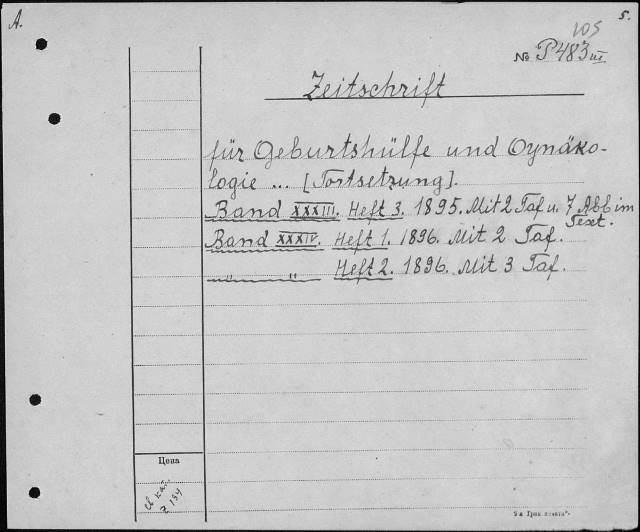 A.
105
5.
№ P483 III
Zeitschrift
für Geburtshülfe und Gynäko-
logie ... [Fortsetzung].
Band XXXIII. Heft 3. 1895. Mit 2 Taf u. 7 Abb im
Text.
Band XXXIV. Heft 1. 1896. Mit 2 Taf.
" " Heft 2. 1896. Mit 3 Taf.
Цена
2 134
9-я Грак